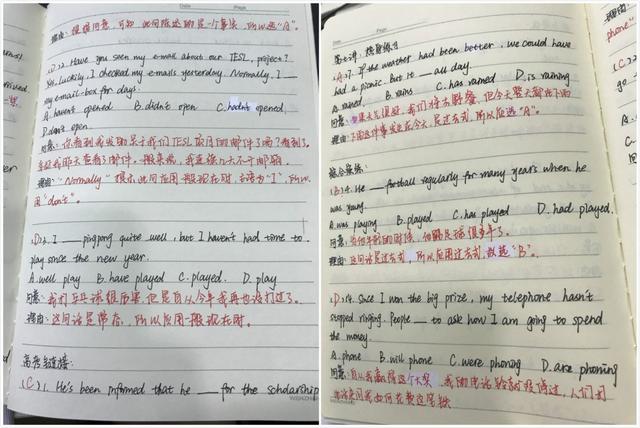 理由：根据问意，可知此问陈述的是一个事实，所以选"A"。
(D)22. Have you seen my e-mail about our TESL project?
Yes, luckily, I checked my e-mails yesterday. Normally, I __
my e-mail-box for days.
A. haven't opened B. didn't open C. hadn't opened
D. don't open
问意：你看到我发的关于我们TESL项目的邮件了吗？看到了。
理由："Normally"提示此问应用一般现在时，主语为"I"，所以
用"don't"。
(D)23. I __ pingpong quite well, but I haven't had time to
play since the new year.
A. well play B. have played C. played. D. play
问意：我打乒乓球很厉害，但是自从今年我再也没打过了。
理由：这问话是常态，所以应用一般现在时。
高考链接：
(C)1. He's been informed that he __ for the scholarship
第七讲：热身练习
(A)7. If the weather had been better, we could have
had a picnic. But it __ all day.
A. rained. B. rains C. has rained D. is raining
问意：如果天气很好，我们将去野餐，但今天整天都在下雨
理由：下雨这件事发生在今天，是过去式，所以应选"A"。
综合演练：
(B)4. He __ football regularly for many years when he
was young.
A. was playing B. played C. has played D. had played.
问意：当他年轻的时候，他踢足球很多年了。
理由：这问话是过去式，所以应用过去式，故选"B"。
(D)14. Since I won the big prize, my telephone hasn't
stopped ringing. People __ to ask how I am going to spend
the money.
A. phone B. will phone C. were phoning D. are phoning
问意：自从我赢得这个大奖，我的电话铃就没停过，人们打
电话来问我如何花费这笔钱
phone"
(C)22
go